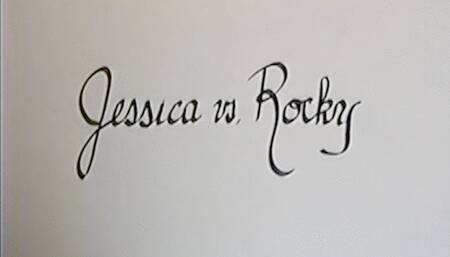 Jessica vs. Rocky